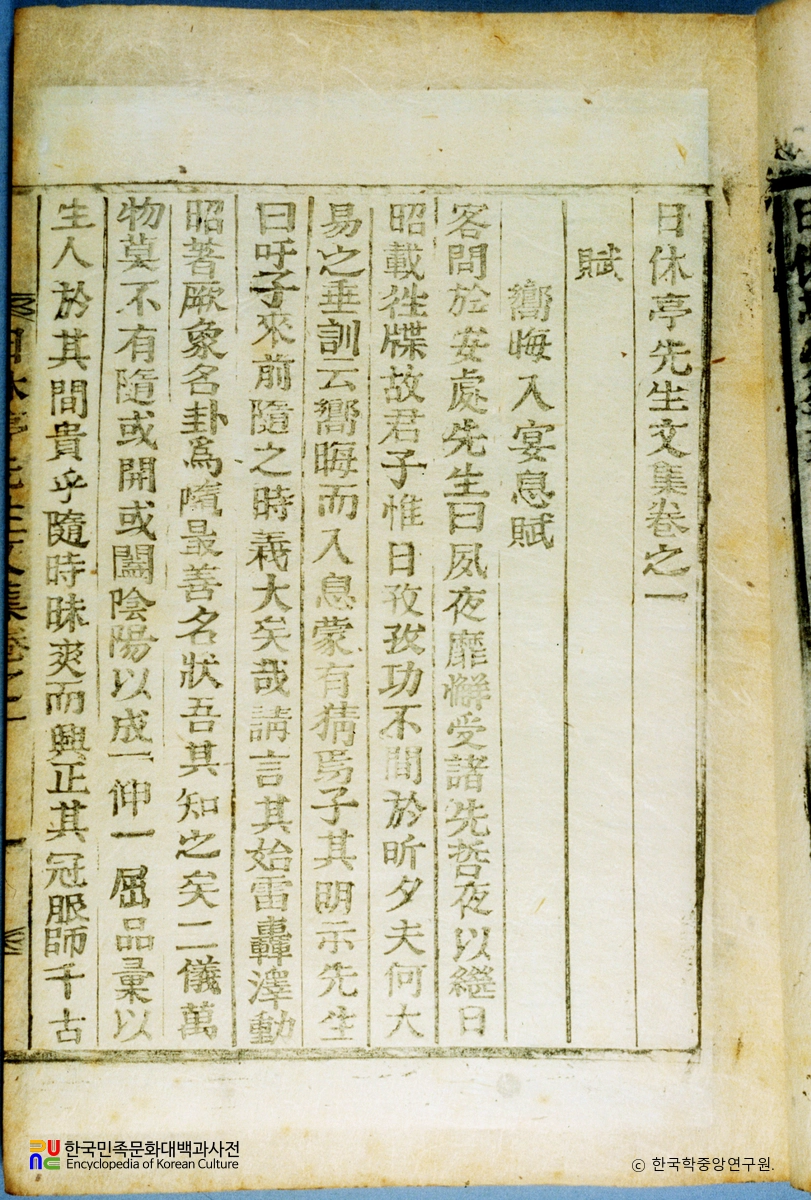 日休亭先生文集卷之一
賦
嚮晦入宴息賦
客問於安處先生曰夙夜靡懈受諸先哲夜以繼日
昭載徃牒故君子惟日孜孜功不間於昕夕夫何大
易之垂訓云嚮晦而入息蒙有猜焉子其明示先生
曰吁子來前隨之時義大矣哉請言其始雷轟澤動
昭著厥象名卦爲隨最善名狀吾其知之矣二儀萬
物莫不有隨或開或闔陰陽以成一伸一屈品彙以
生人於其間貴乎隨時昧爽而興正其冠服師千古
日休亭先生文集卷之一
한국민족문화대백과사전
Encyclopedia of Korean Culture
ⓒ 한국학중앙연구원.